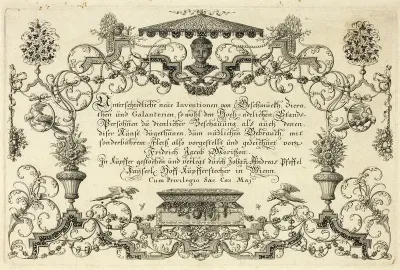 Unterschiedliche neue Inventionen von Geschmuck, Zierathen
chen und Galanterien, so wohl den Hoch-adelichen Stands-
Persohnen zu deutlicher Beschauung, als auch denen
diser Kunst zugethanen, zum nüzlichen Gebrauch, mit
sonderbahrem Fleiß also vorgestellt und gezeichnet von
Fridrich Jacob Morisson.
In Kupfer gestochen und verlegt durch Johan Andreas Pfeffel
Kaÿserl: Hoff-Kupferstecher in Wienn.
Cum Privilegio Sac. Caes. Maj.